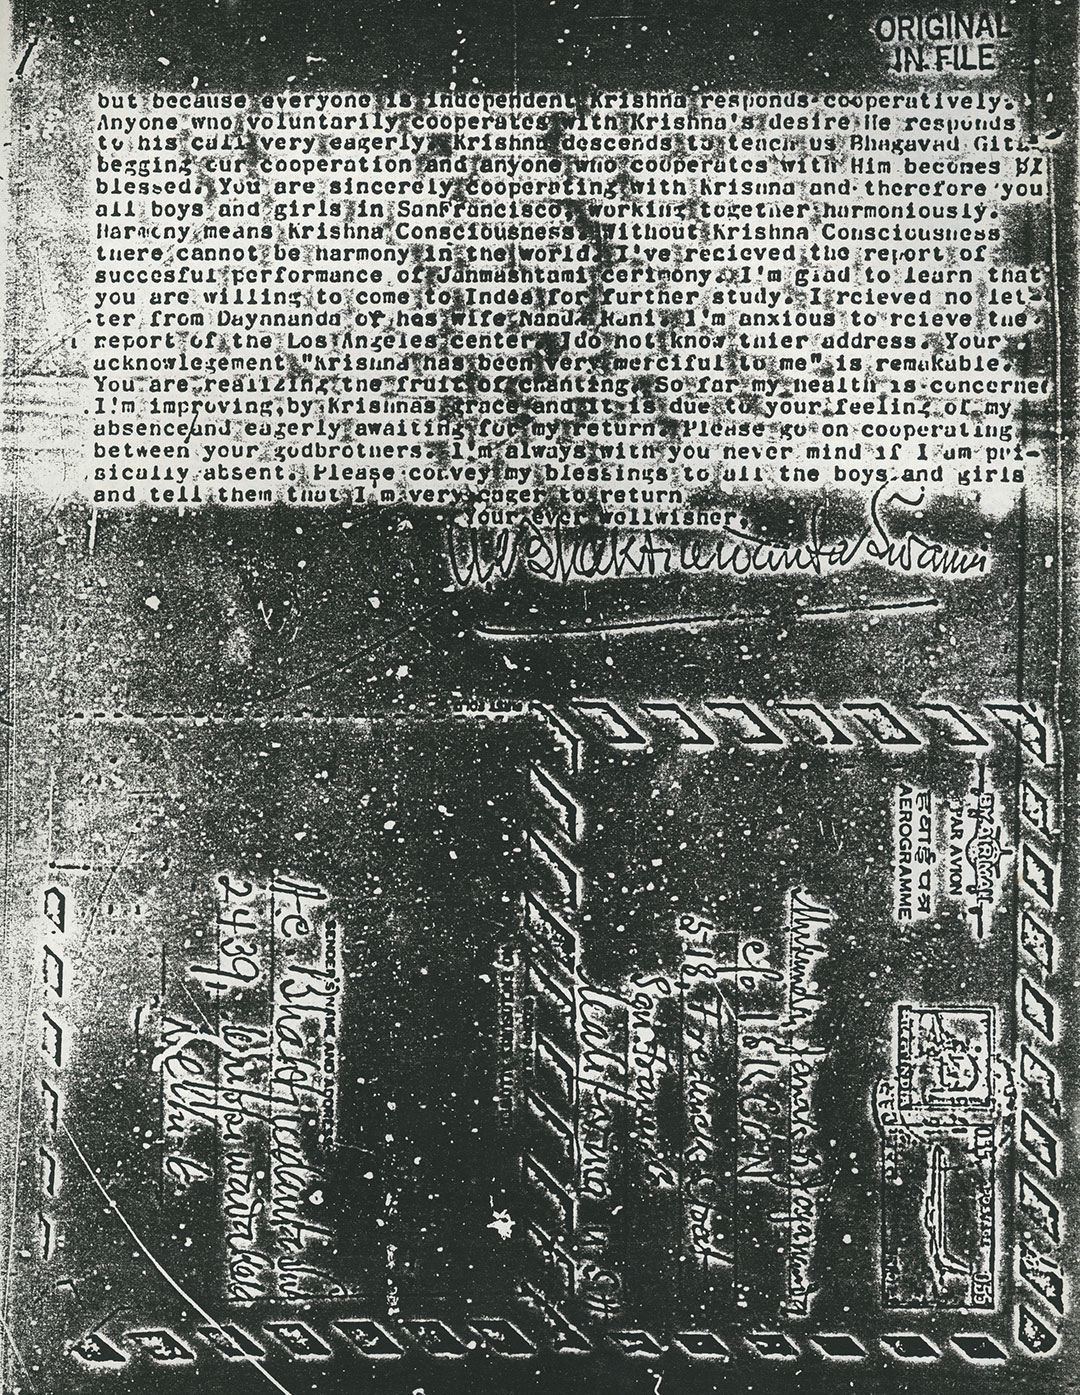 ORIGINAL
IN FILE
but because everyone is independent Krishna responds cooperatively.
Anyone who voluntarily cooperates with Krishna's desire He responds
to his call very eagerly. Krishna descends to teach us Bhagavad Gita
begging our cooperation and anyone who cooperates with Him becomes
blessed. You are sincerely cooperating with Krishna and therefore you
all boys and girls in SanFrancisco, working together harmoniously.
Harmony means Krishna Consciousness. Without Krishna Consciousness
there cannot be harmony in the world. I've recieved the report of
succesful performance of Janmashtami cerimony. I'm glad to learn that
you are willing to come to Indea for further study. I rcieved no let-
ter from Daynnanda or hes wife Nanda Rani. I'm anxious to rcieve the
report of the Los Angeles center. Ido not know thier address. Your
acknowlegement "Krishna has been very merciful to me" is remakable.
You are realizing the fruit of chanting. So far my health is concerned
I'm improving by Krishnas grace and it is due to your feeling of my
absence and eagerly awaiting for my return. Please go on cooperating
between your godbrothers. I'm always with you never mind if I am phi-
sically absent. Please convey my blessings to all the boys and girls
and tell them that I m very eager to return
Your ever wellwisher,
A.C. Bhaktivedanta Swami
FIRST FOLD
BY AIR MAIL
PAR AVION
हवाई पत्र
AEROGRAMME
Mukunda
c/o ISKCON
518 Frederick Street
San Francisco
California U.S.A
SENDER'S NAME AND ADDRESS
A.C. Bhaktivedanta Swami
2439,
Delhi 6